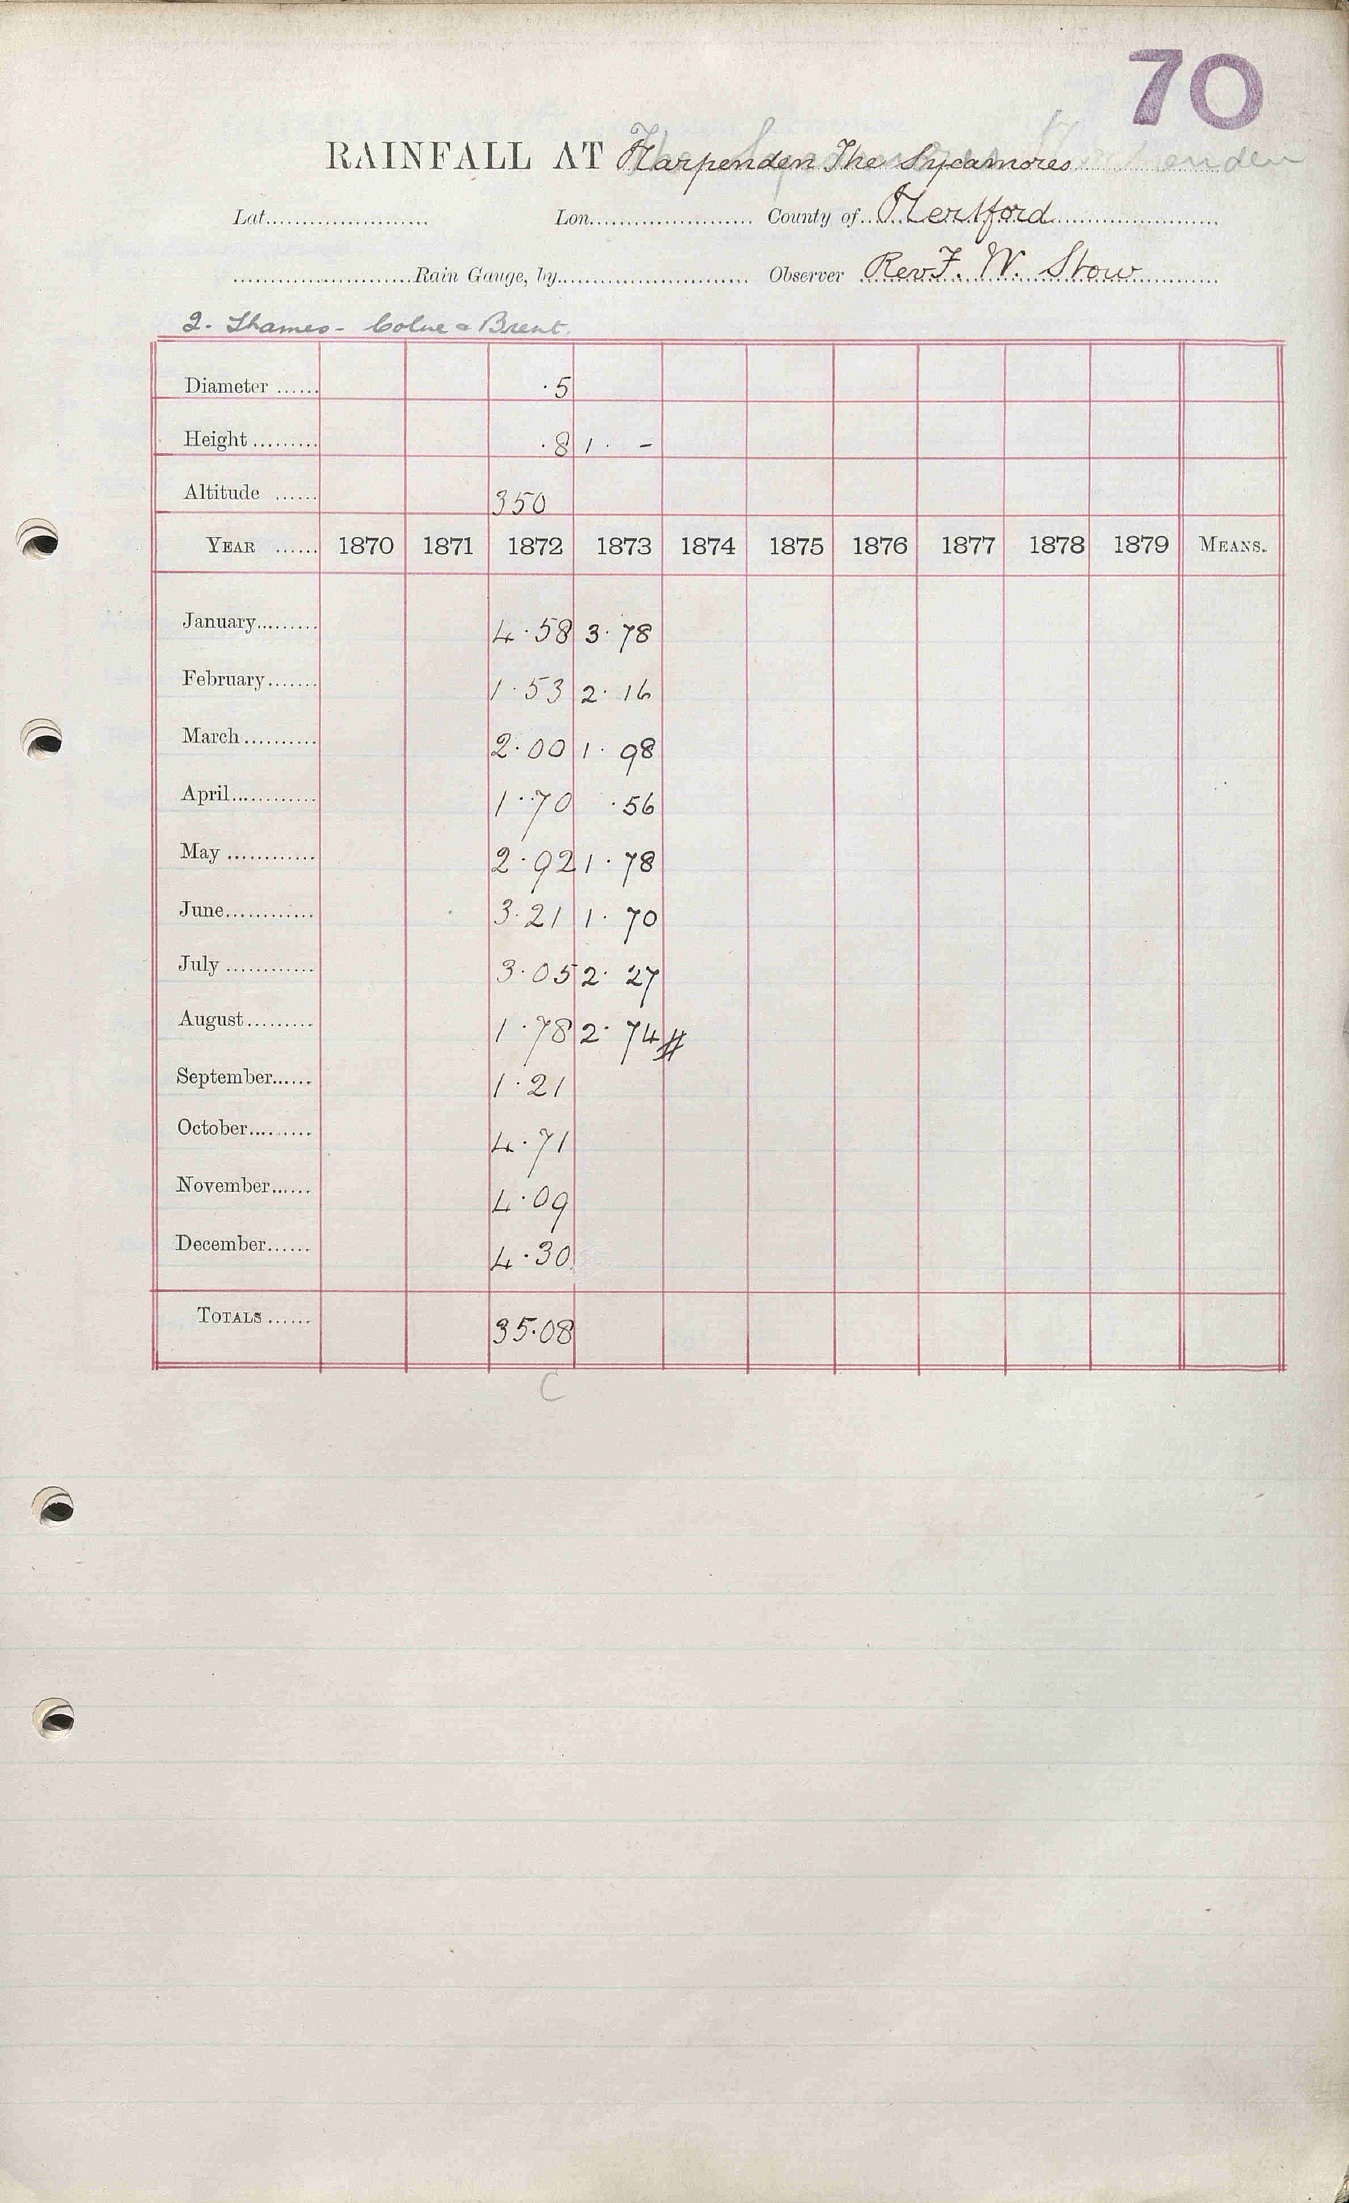 70
RAINFALL AT Harpenden The Sycamores
Lat. Lon. County of Hertford
Rain Gauge, by Observer Rev F. W. Stow
2. Thames - Colne & Brent.
Diameter ...... ·5
Height ......... ·8 1· -
Altitude ...... 350
YEAR ...... 1870 1871 1872 1873 1874 1875 1876 1877 1878 1879 MEANS.
January......... 4·58 3·78
February....... 1·53 2·16
March.......... 2·00 1·98
April............ 1·70 ·56
May ............ 2·92 1·78
June............ 3·21 1·70
July ............ 3·05 2·27
August......... 1·78 2·74 #
September...... 1·21
October......... 4·71
November...... 4·09
December...... 4·30
TOTALS ...... 35·08
C